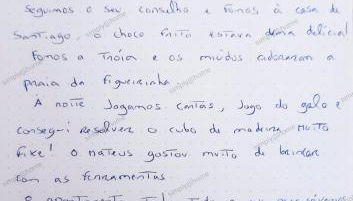 Seguimos o seu conselho e fomos à casa de
Santiago, o choco frito estava uma delícia!
Fomos a Tróia e os miúdos adoraram a
praia da Figueirinha.
A noite jogamos cartas, jogo do galo e
consegui resolver o cubo de madeira muito
fixe! O Mateus gostou muito de brincar
com as ferramentas.
O apartamento